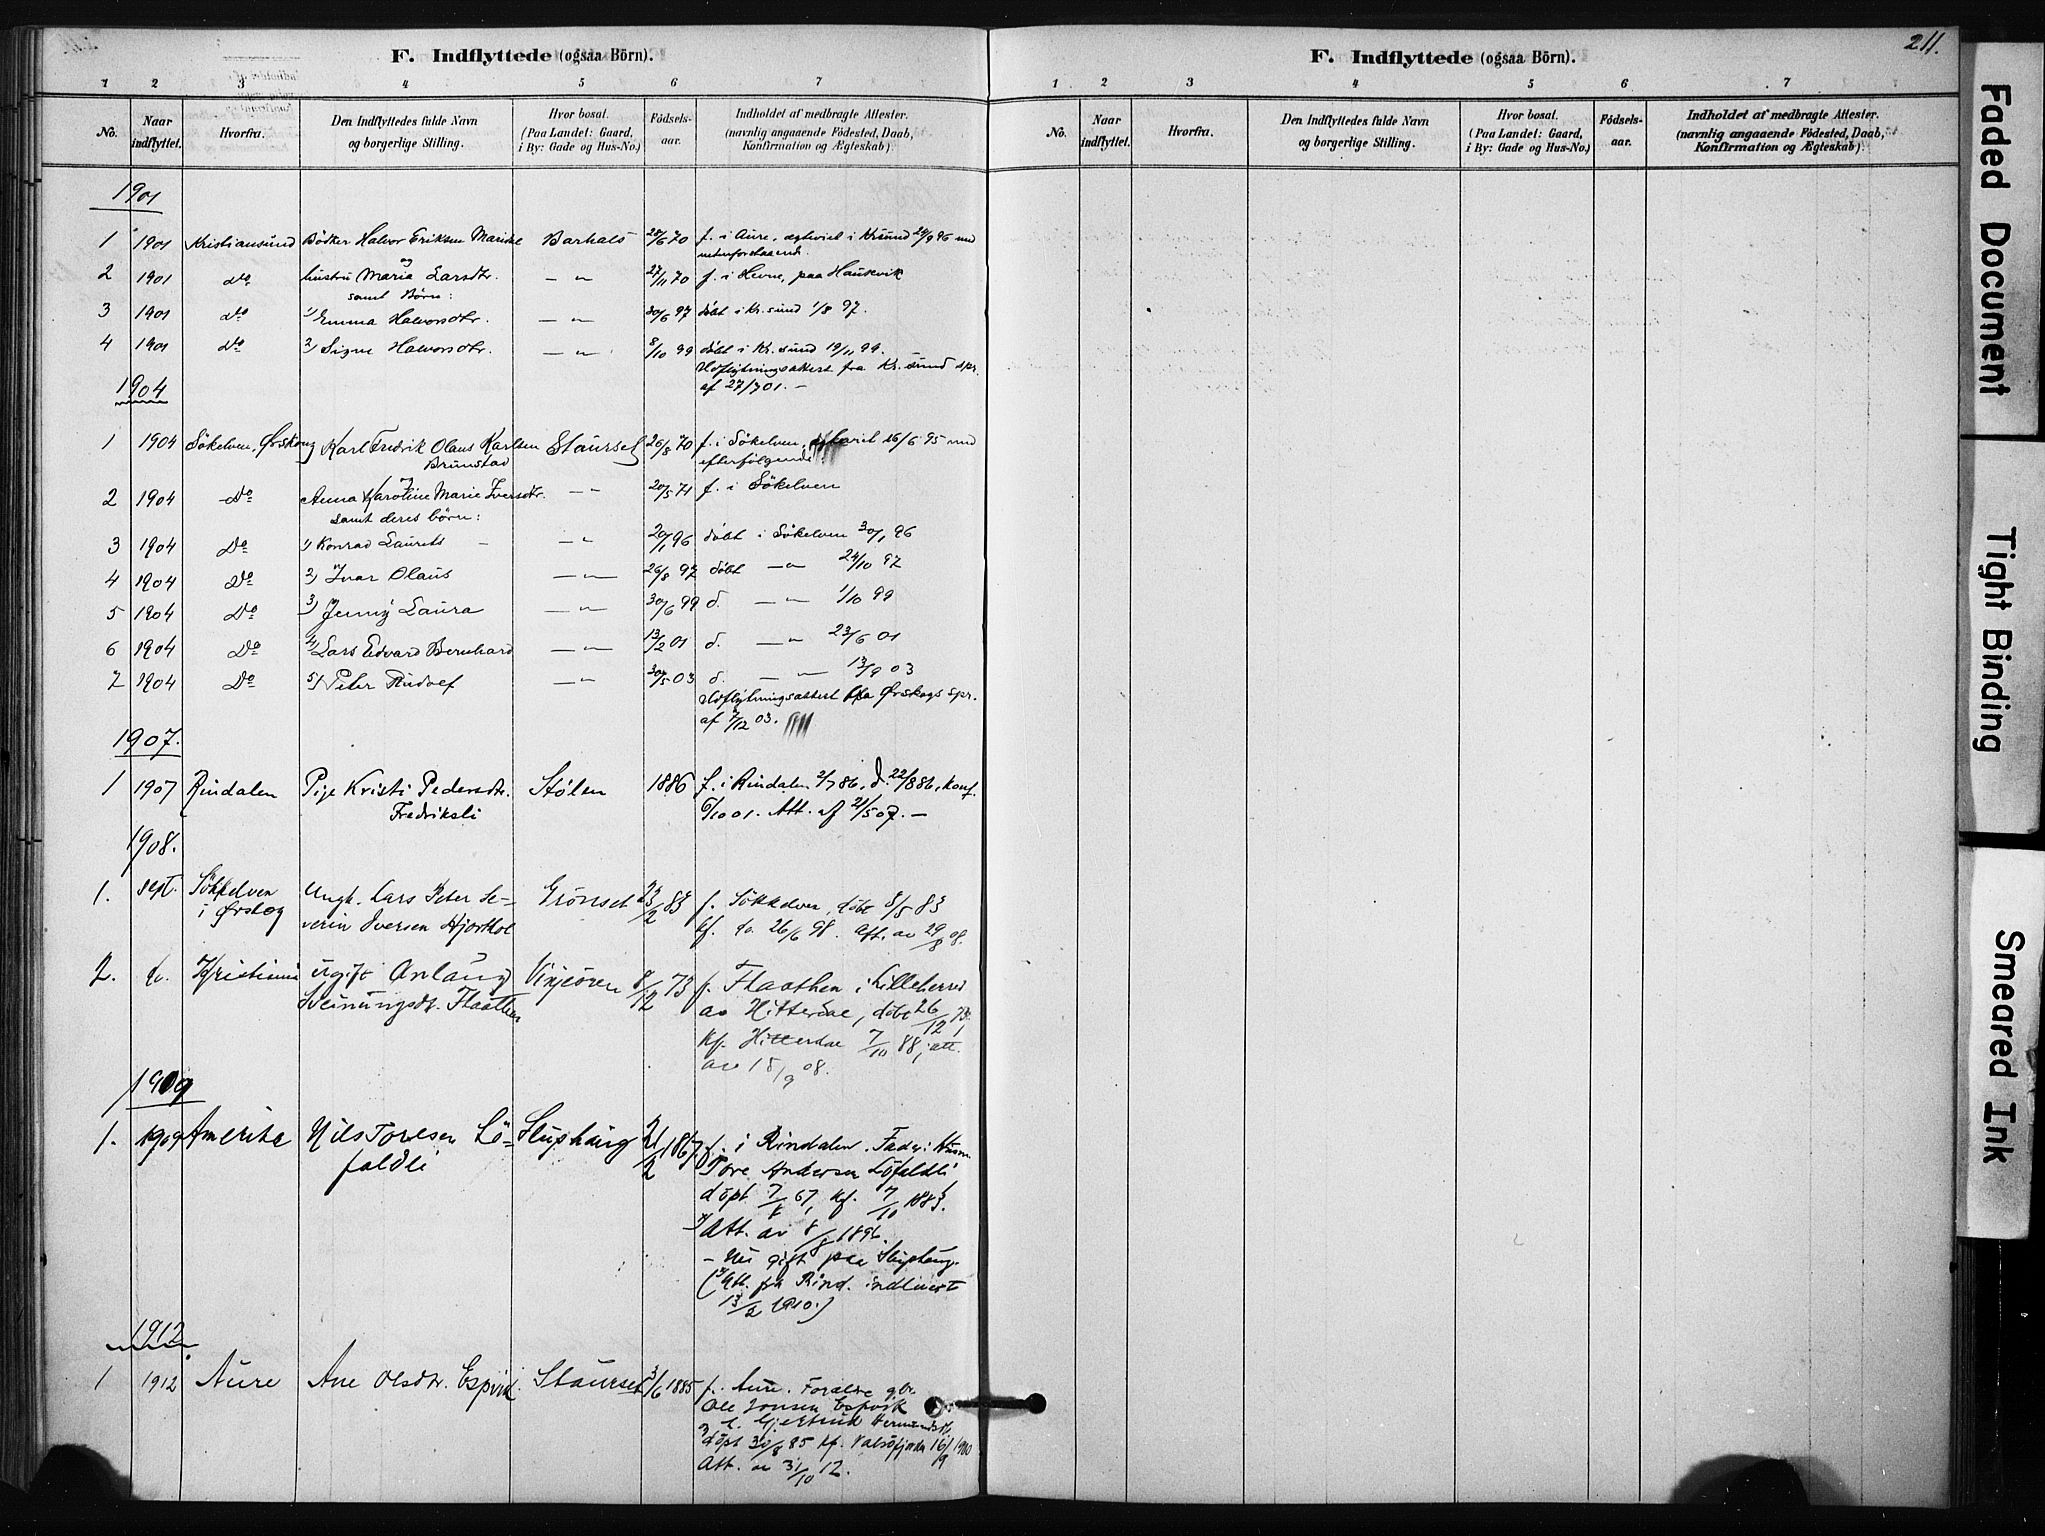 F. Indflyttede (ogsaa Börn).
1 2 3 4 5 6 7
No. Naar indflyttet. Hvorfra. Den Indflyttedes fulde Navn og borgerlige Stilling. Hvor bosat. (Paa Landet: Gaard, i By: Gade og Hus-No.) Födsels-aar. Indholdet af medbragte Attester. (navnlig angaaende Födested, Daab, Konfirmation og Ægteskab)
1901
1 1901 Kristiansund Bödker Halvor Eriksen Barhals 6 70 f. i Aure, i Krsund 9 96 med
nedenforstaaende.
2 1901 do hustru Maria Larsdtr. — " — 27/11 70 f. i Hevne, paa Haukvik
og
samt Børn:
3 1901 Do 1) Emma Halvorsdtr. — " — 30/6 97 døbt i Kr.sund 1/8 97.
4 1901 Do 2) Signe Halvorsdtr. — " — 8/10 99 døbt i Kr.sund 19/11 99.
Udflytningsattest fra Kr.sund spr.
af 27/7 01. —
1904
1 1904 Sökelven, Ørskoug Karl Fredrik Olaus Karlsen Staurset 26/8 70 f. i Sökelven, 26/6 95 med
Brunstad efterfølgende
og
2 1904 Do Anna Karoline Marie Iversdtr. — " — 20/5 71 f. i Sökelven
samt deres børn:
3 1904 Do 1) Konrad Laurits — " — 20/1 96 døbt i Sökelven 30/1 96
4 1904 Do 2) Ivar Olaus — " — 26/8 97 døbt — " — 24/10 97
5 1904 Do 3) Jenny Laura — " — 30/6 99 d. — " — 1/10 99
6 1904 Do 4) Lars Edvard Bernhard — " — 13/2 01 d. — " — 23/6 01
7 1904 Do 5) Peter Rudolf — " — 30/5 03 d. — " — 13/9 03
Udflytningsattest fra Ørskogs spr.
af 7/12 03.
1907.
1 1907 Rindalen Pige Kristi Pedersdtr. Stölen 1886 f. i Rindalen 2/7 86, d. 22/8 86, konf.
Fredriksli 6/10 01. Att. af 21/5 07. —
1908.
1. sept. Sökkelven Ungk. Lars Peter Se- Grönset 23/2 83 f. Sökkelven, döbt 8/5 83
i Ørskog verin Iversen Hjorthol kf. do. 26/6 98. att. av 29/8 08.
2. do. Kristiania ugift Anlaug Vinjeören 8/12 73 f. Flaathen i Lilleherred
Sveinungsdt. Flaathen av Hitterdal, döbt 26/12 73,
Kf. Hitterdal 7/10 88, att.
av 18/9 08.
1909
1. 1909 Amerika Nils Toresen Lö- Sluphaug 21/2 1867 f. i Rindalen. Fader: Husm
faldli Tore Andersen Löfaldli
döpt 7/ 67, kf. 7/10 1883.
Att. av 8/8 1896.
– Nu gift paa Sluphaug.
(Att. fra Rind. indlevert
13/2 1910.)
1912.
1 1912 Aure Ane Olsdtr. Espvik Staurset 3/6 1885 f. Aure. Foreldre gbr.
Ole Jonsen Espvik
Gjertrud
döpt 30/8 85 kf. Valsöfjorden 16/9 1900
Att. av 31/10 12.
211.
F. Indflyttede (ogsaa Börn).
1 2 3 4 5 6 7
No. Naar indflyttet. Hvorfra. Den Indflyttedes fulde Navn og borgerlige Stilling. Hvor bosat. (Paa Landet: Gaard, i By: Gade og Hus-No.) Födsels-aar. Indholdet af medbragte Attester. (navnlig angaaende Födested, Daab, Konfirmation og Ægteskab)
Faded Document
Tight Binding
Smeared Ink